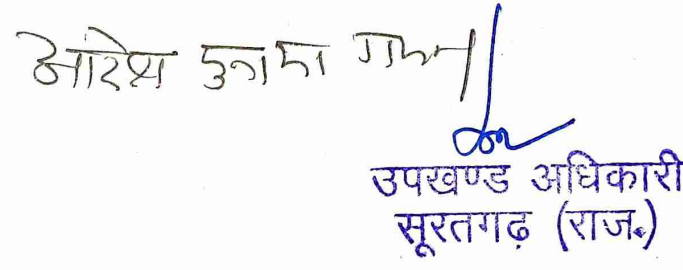 आदेश सुनाया गया।
उपखण्ड अधिकारी
सूरतगढ़ (राज.)